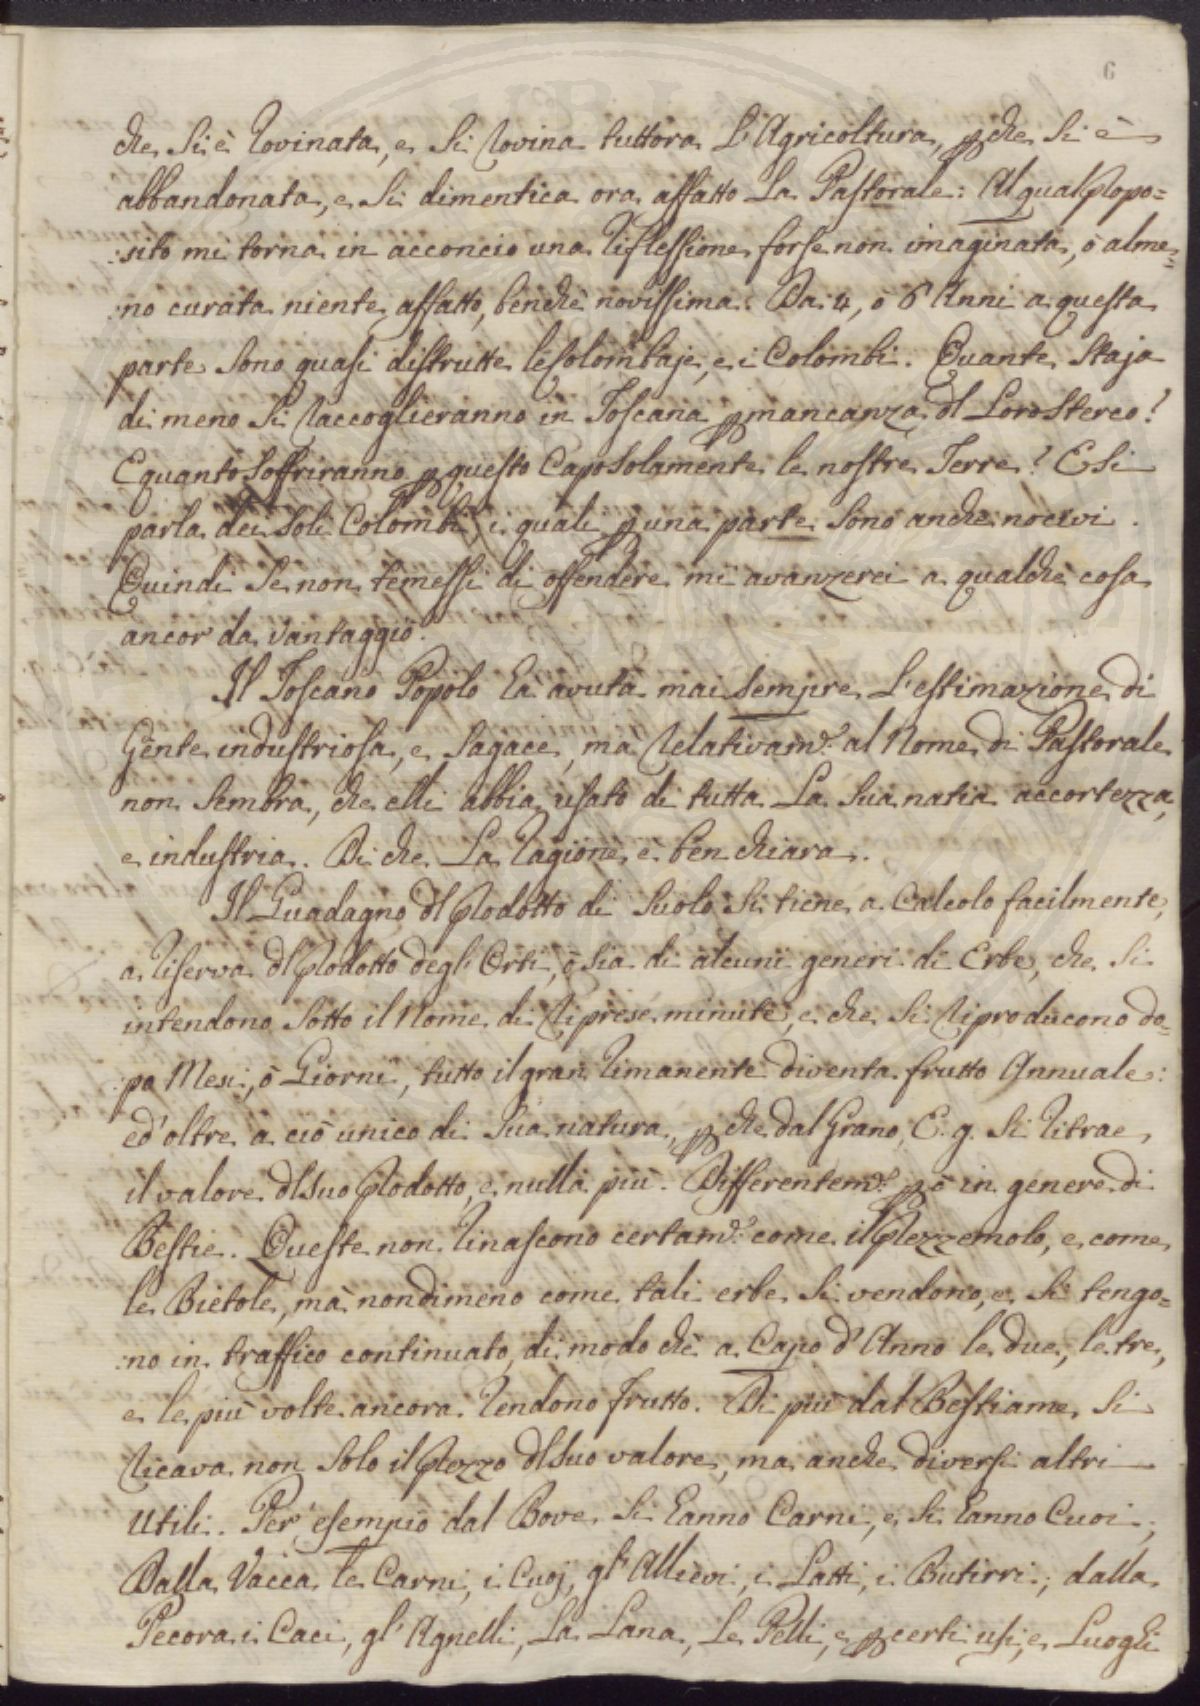 6
che si è rovinata, e si rovina tuttora l'Agricoltura, perche si è
abbandonata, e si dimentica ora affatto la Pastorale: Al qual Propo=
:sito mi torna in acconcio una riflessione forse non imaginata, ò alme=
:no curata niente affatto, benchè novissima. Da 4, ò 6 Anni a questa
parte sono quasi distrutte le Colombaje, e i Colombi. Quante Staja
di meno si raccoglieranno in Toscana per mancanza dl Loro Sterco?
E quanto soffriranno per questo Capo solamente le nostre Terre? E si
parla dei soli Colombi, i quali per una parte sono anche nocivi.
Quindi se non temessi di offendere mi avanzerei a qualche cosa
ancor da vantaggio.
Il Toscano Popolo hà avuta mai sempre l'estimazione di
Gente industriosa, e sagace, ma relativam.e al Nome di Pastorale
non sembra, che elli abbia usato di tutta la sua natia accortezza,
e industria. Di che la ragione è ben chiara.
Il Guadagno dl Prodotto di suolo si tiene a Calcolo facilmente,
a riserva dl Prodotto degl'Orti, ò sia di alcuni generi di Erbe, che si
intendono sotto il Nome di riprese minute, e che si riproducono do=
:po Mesi, ò Giorni, tutto il gran rimanente diventa frutto Annuale:
ed'oltre a ciò unico di sua natura, perche dal Grano, E. g. si ritrae
il valore dl suo Prodotto, e nulla più. Differentem.e però in genere di
Bestie. Queste non rinascono certam.e come il Prezzemolo, e come
le Bietole, mà nondimeno come tali erbe si vendono, e si tengo=
:no in traffico continuato, di modo chè a Capo d'Anno le due, le tre,
e le più volte ancora rendono frutto. Di più dal Bestiame si
ricava non solo il Prezzo dl suo valore, ma anche diversi altri
Utili. Per esempio dal Bove si hanno Carni, e si hanno Cuoi;
Dalla Vacca le Carni, i Cuoj, gl'Allievi, i Latti, i Butirri; dalla
Pecora i Caci, gl'Agnelli, la Lana, le Pelli, e per certi usi, e Luoghi